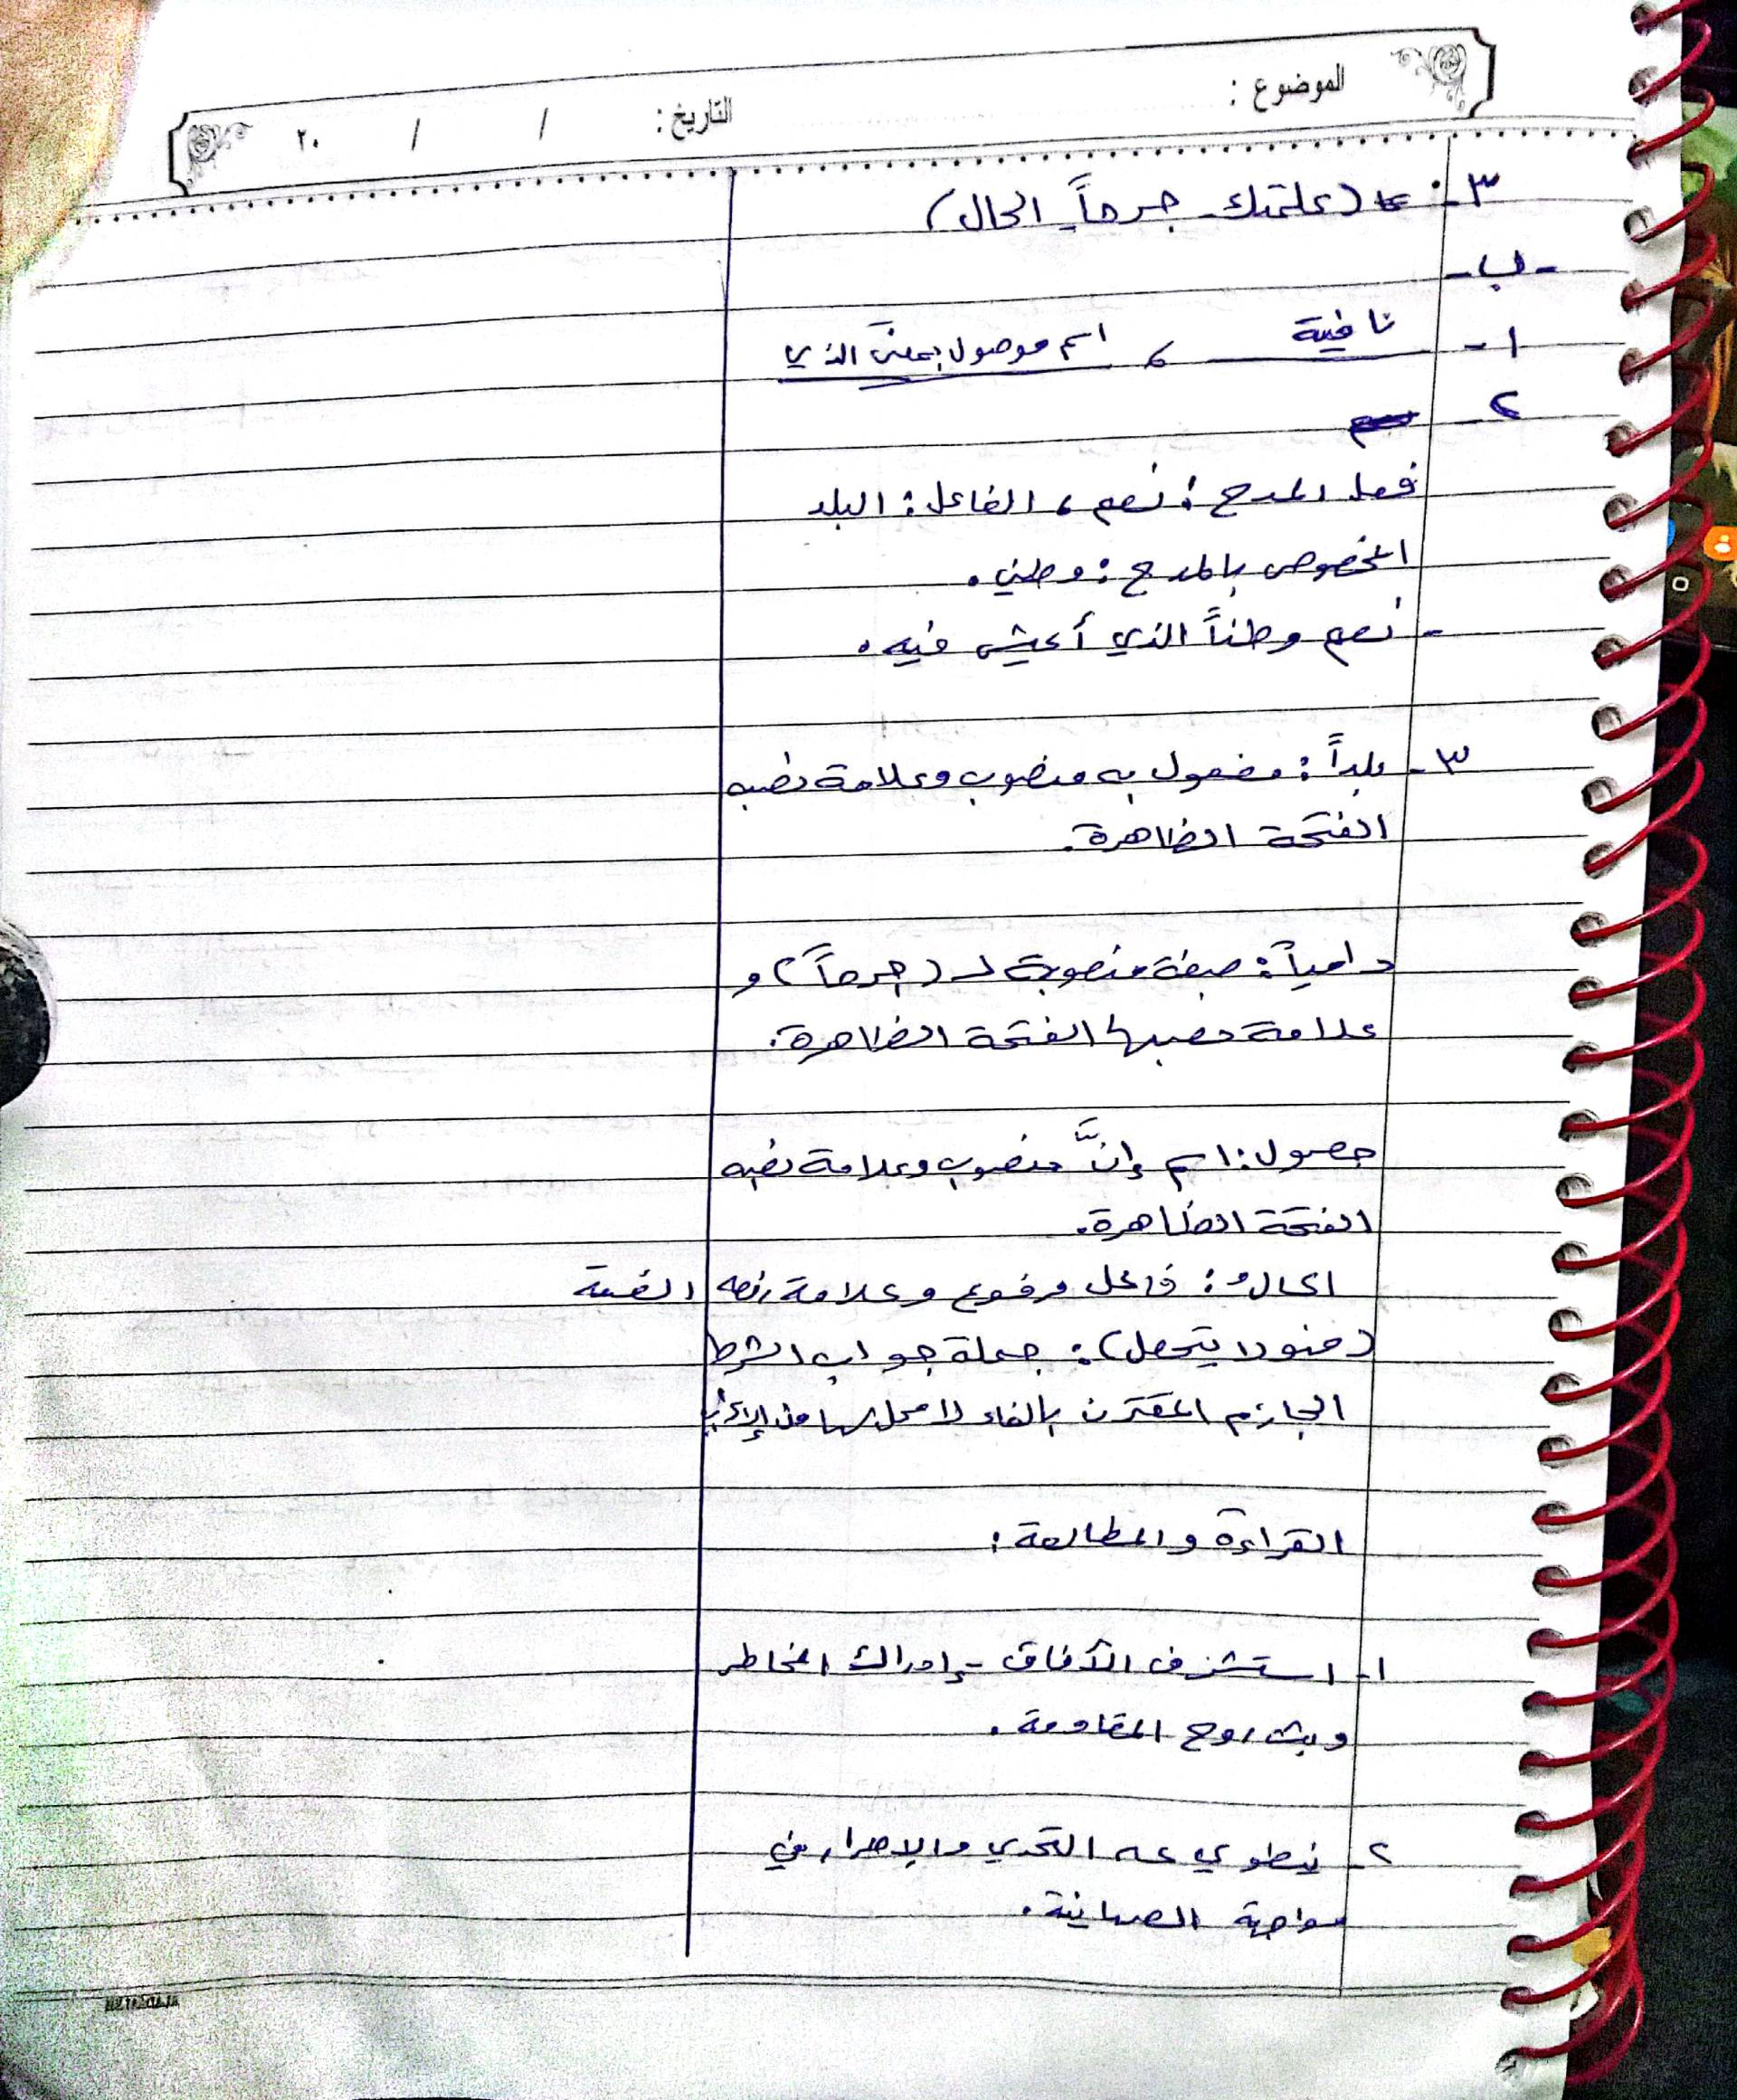 الموضوع :
التاريخ : / / ٢٠
٣- (علمتك جرحاً الحال)
- ب -
١- نافية ، اسم موصول بمعنى الذي
٢-
فعل المدح : نعم ، الفاعل : البلد
المخصوص بالمدح : وطني .
- نعم وطناً الذي أعيش فيه .
٣- بلداً : مفعول به منصوب وعلامة نصبه
الفتحة الظاهرة .
دامياً : صفة منصوبة لـ (جرحاً) و
علامة نصبها الفتحة الظاهرة .
حصول : اسم إنَّ منصوب وعلامة نصبه
الفتحة الظاهرة .
الحالُ : فاعل مرفوع وعلامة رفعه الضمة
(يتحمل) : جملة جواب الشرط
الجازم المقترن بالفاء لا محل لها من الإعراب
القراءة والمطالعة :
١- استشرف الآفاق - إدراك المخاطر
وبث روح المقاومة .
٢- ينطوي عـ التحدي والإصرار في
مواجهة الصهاينة .